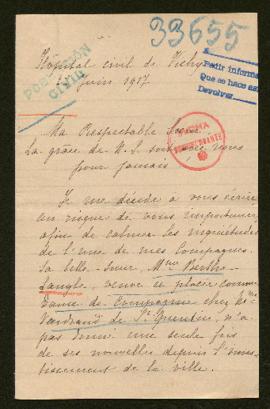 33655
Hôpital civil de Vichy
Juin 1917
POBLACIÓN
CIVIL
Pedir informa
Que se hace
Devolver
Ma Respectable Soeur
La grâce de N. S. soit avec nous
pour jamais
Je me décide à vous écrire
au risque de vous importuner,
afin de calmer les inquiétudes
de l'une de mes Compagnes.
Sa belle-soeur, Mme
Langlet, veuve et placée comme
Dame de Compagnie chez
de St Quentin n'a
pas donné une seule fois
de ses nouvelles depuis l'inves-
tissement de la ville.